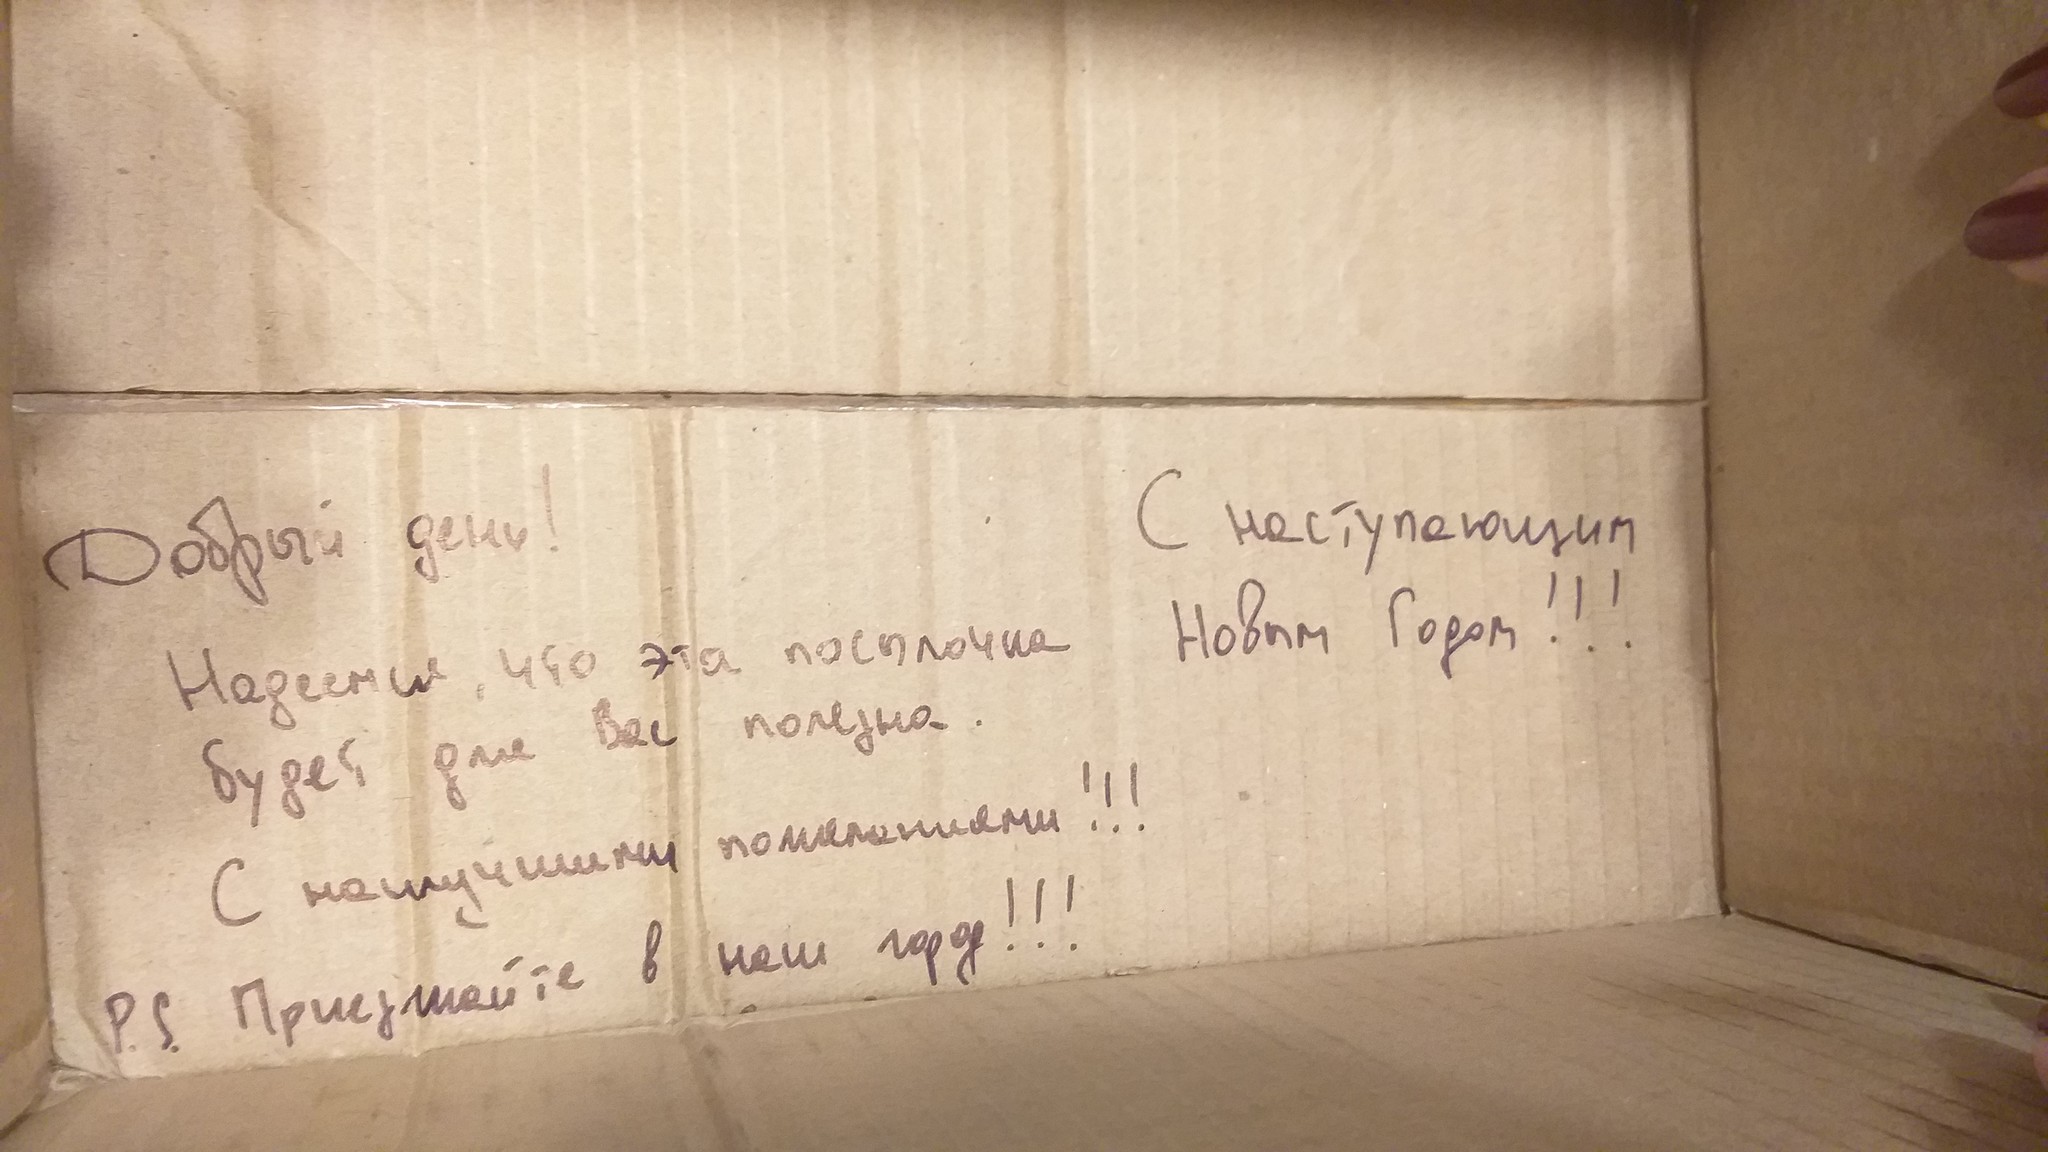 Добрый день!
Надеемся, что эта посылочка
будет для Вас полезна.
С наилучшими пожеланиями!!!
P.S. Приезжайте в наш город!!!
С наступающим
Новым Годом!!!